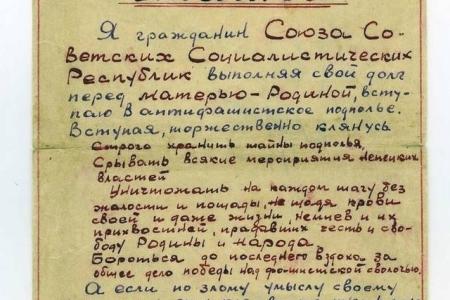 Я гражданин Союза Со-
ветских Социалистических
Республик выполняя свой долг
перед матерью-Родиной, всту-
паю в антифашистское подполье.
Вступая, торжественно клянусь
Строго хранить тайны подполья,
Срывать всякие мероприятия немецких
властей
Уничтожать на каждом шагу без
жалости и пощады, не щадя крови
своей и даже жизни, немцев и их
прихвостней, продавших честь и сво-
боду Родины и народа.
Бороться до последнего вздоха за
общее дело победы над фашистской сволочью.
А если по злому умыслу своему